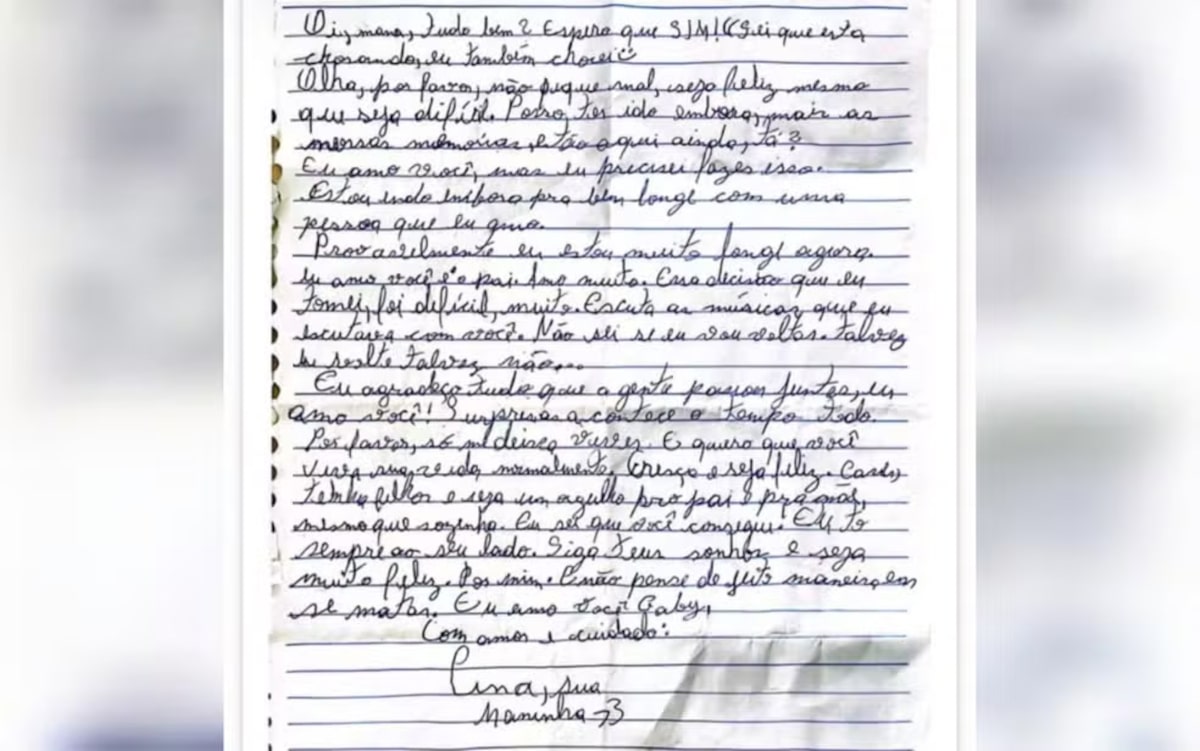 Oi, mana, tudo bem? Espero que SIM! (Sei que esta
chorando, eu também chorei
Olha, por favor, não fique mal, seja feliz mesmo
que seja difícil. Posso ter ido embora, mais as
nossas memórias, estão aqui ainda, tá?
Eu amo você, mas eu precisei fazer isso.
Estou indo embora pra bem longe com uma
pessoa que eu amo.
Provavelmente eu estou muito longe agora.
Eu amo você e o pai. Amo muito. Essa decisão que eu
tomei, foi difícil, muito. Escuta as músicas que eu
escutava com você. Não sei se eu vou voltar. Talvez
eu volte talvez não...
Eu agradeço tudo que a gente passou juntas, eu
amo você! Surpresas acontece o tempo todo.
Por favor, só me deixa viver. E quero que você
viva sua vida normalmente. Cresça e seja feliz. Case,
tenha filhos e seja um orgulho pro pai e pra mãe,
mesmo que sozinha. Eu sei que você consegui! Eu to
sempre ao seu lado. Siga teus sonhos e seja
muito feliz. Por mim. E não pense de jeito maneira, em
se matar. Eu amo você Gaby,
Com amor e cuidado:
sua
Maninha <3